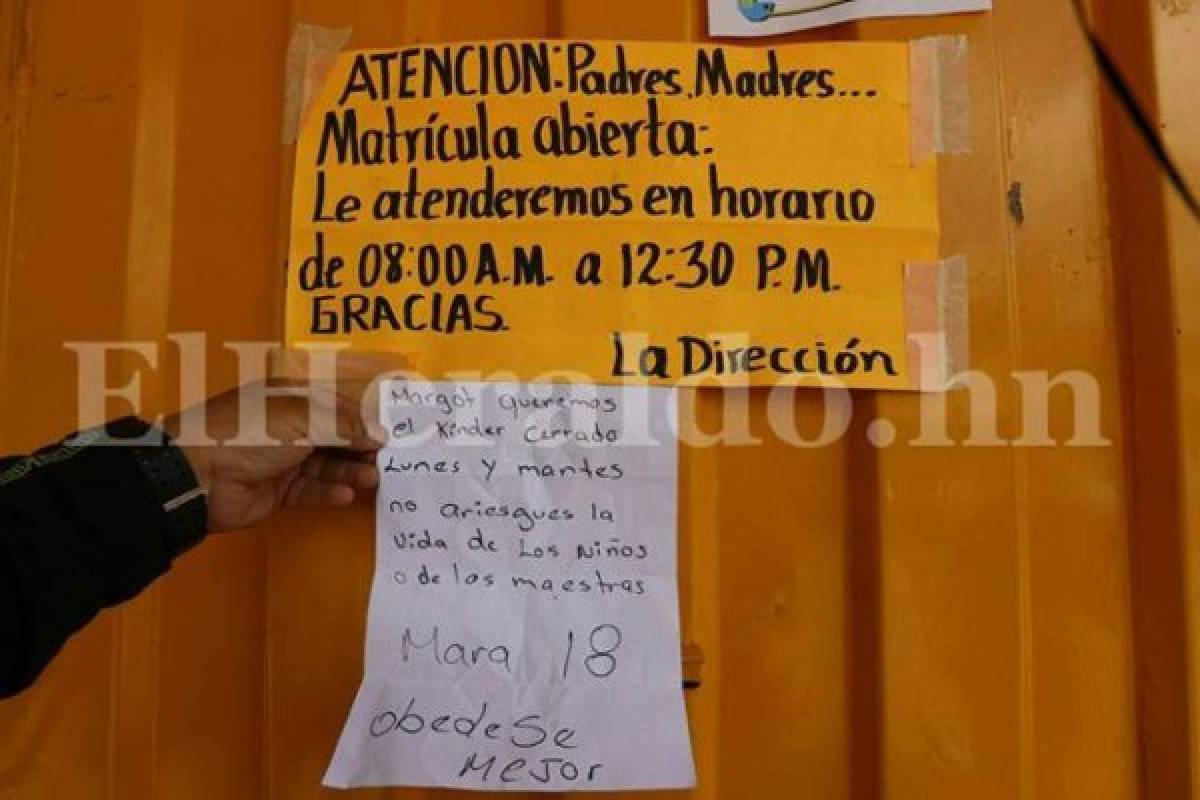 ATENCION: Padres, Madres...
Matrícula abierta:
Le atenderemos en horario
de 08:00 A.M. a 12:30 P.M.
GRACIAS.
La Dirección
ElHeraldo.hn
Margot queremos
el Kinder Cerrado
Lunes y mantes
no ariesgues la
vida de Los niños
o de las maestras
Mara 18
obedese
Mejor